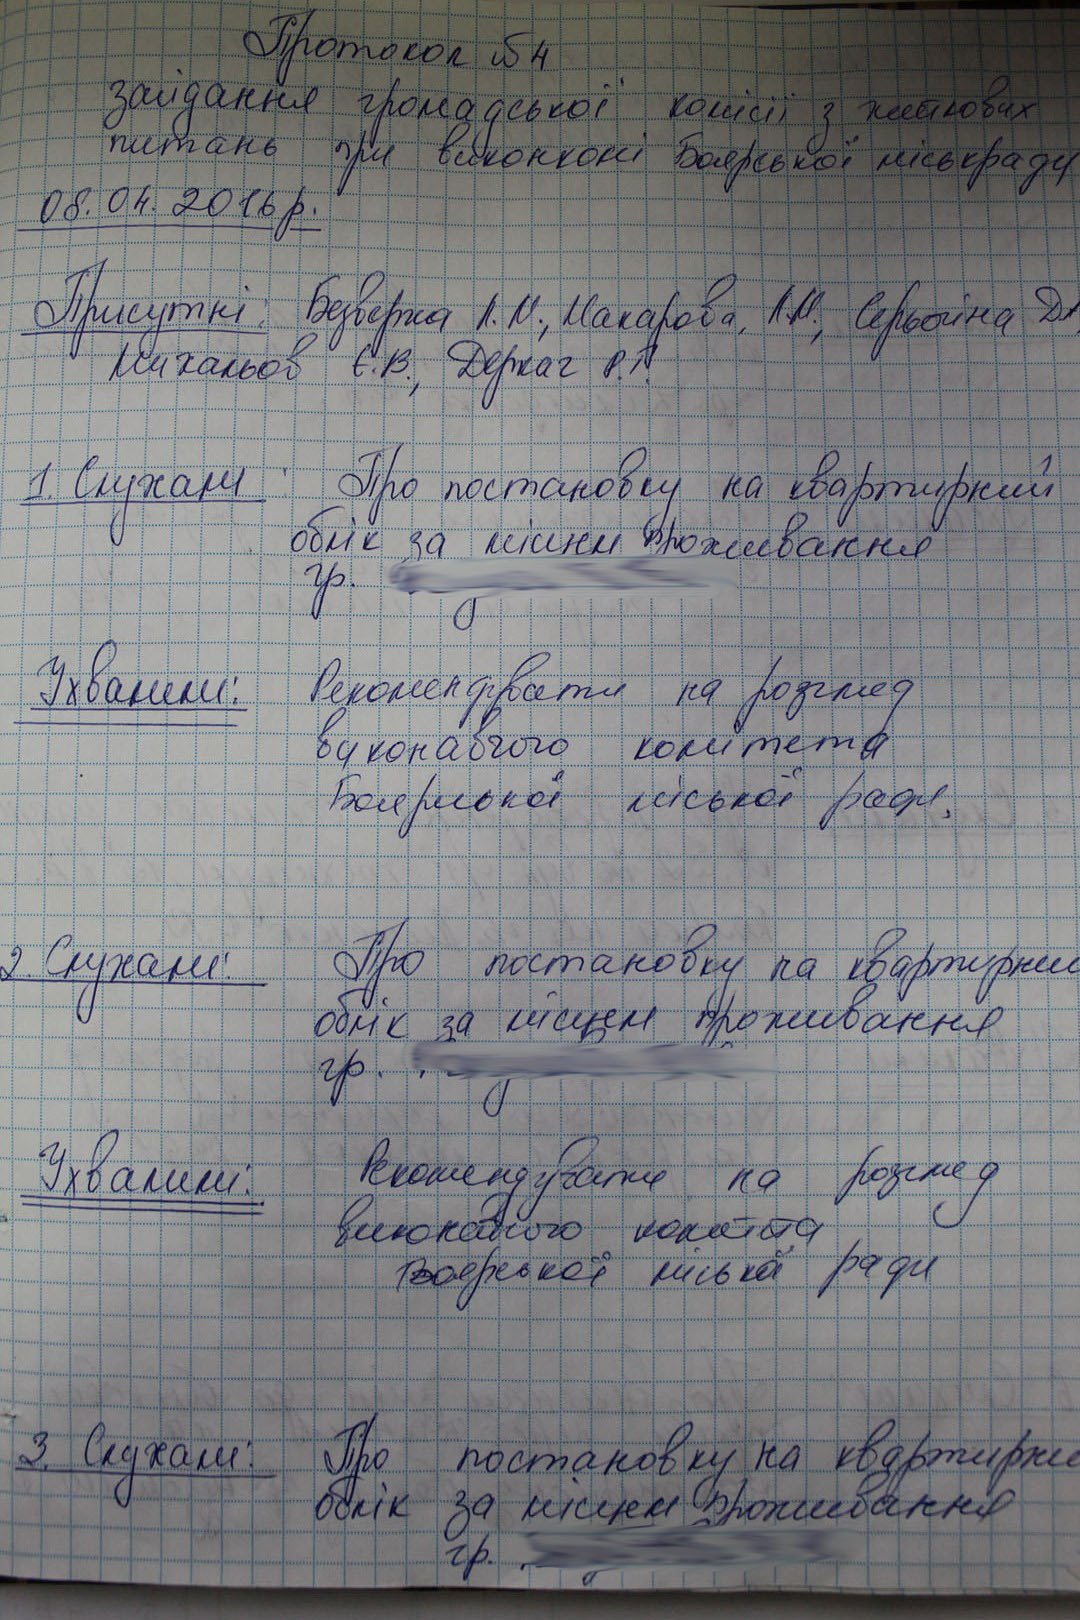 Протокол №4
засідання громадської комісії з житлових
питань при виконкомі Боярської міськради
08.04.2016р.
Присутні: Безверха Л.М., Макарова Л.М., Серьогіна Д.
Михальов Є.В., Деркач Р.Г.
1. Слухали: Про постановку на квартирний
облік за місцем проживання
гр.
Ухвалили: Рекомендувати на розгляд
виконавчого комитета
Боярської міської ради.
2. Слухали: Про постановку на квартирни
облік за місцем проживання
гр.
Ухвалили: Рекомендувати на розгляд
виконавчого комітета
Боярської міської ради
3. Слухали: Про постановку на квартирни
облік за місцем проживання
гр.